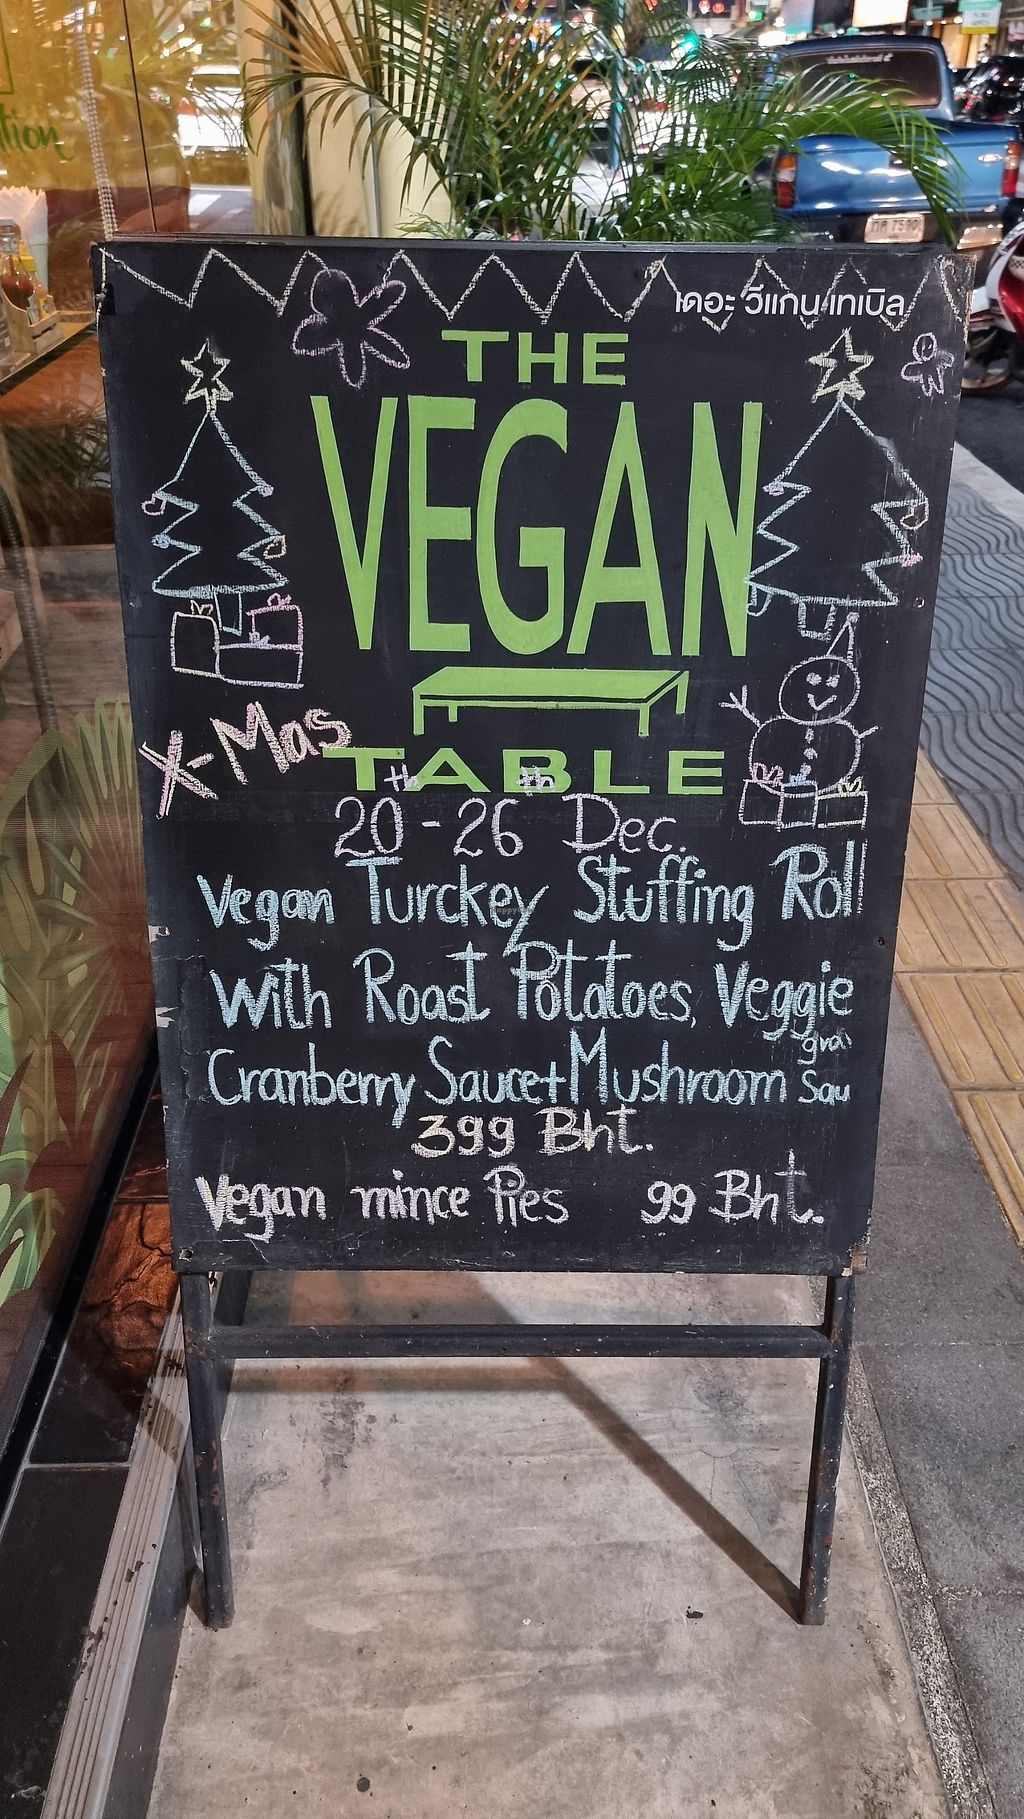 เดอะ วีแกน เทเบิล
THE
VEGAN
TABLE
X-Mas
20th - 26th Dec.
Vegan Turckey Stuffing Roll
With Roast Potatoes, Veggie
Cranberry Sauce+Mushroom
399 Bht.
Vegan mince Pies 99 Bht.